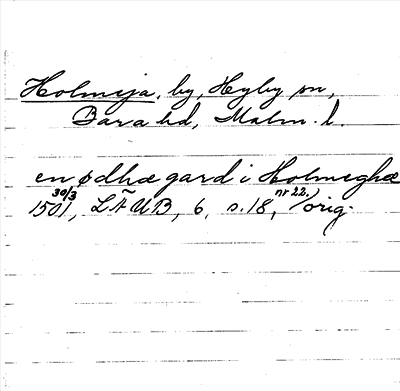 Holmeja, by, Hyby sn,
Bara hd, Malm. l.
en ødhæ gard i Holmeghæ
30/3 1501, LÄUB, 6, s. 18, nr 22. / orig.